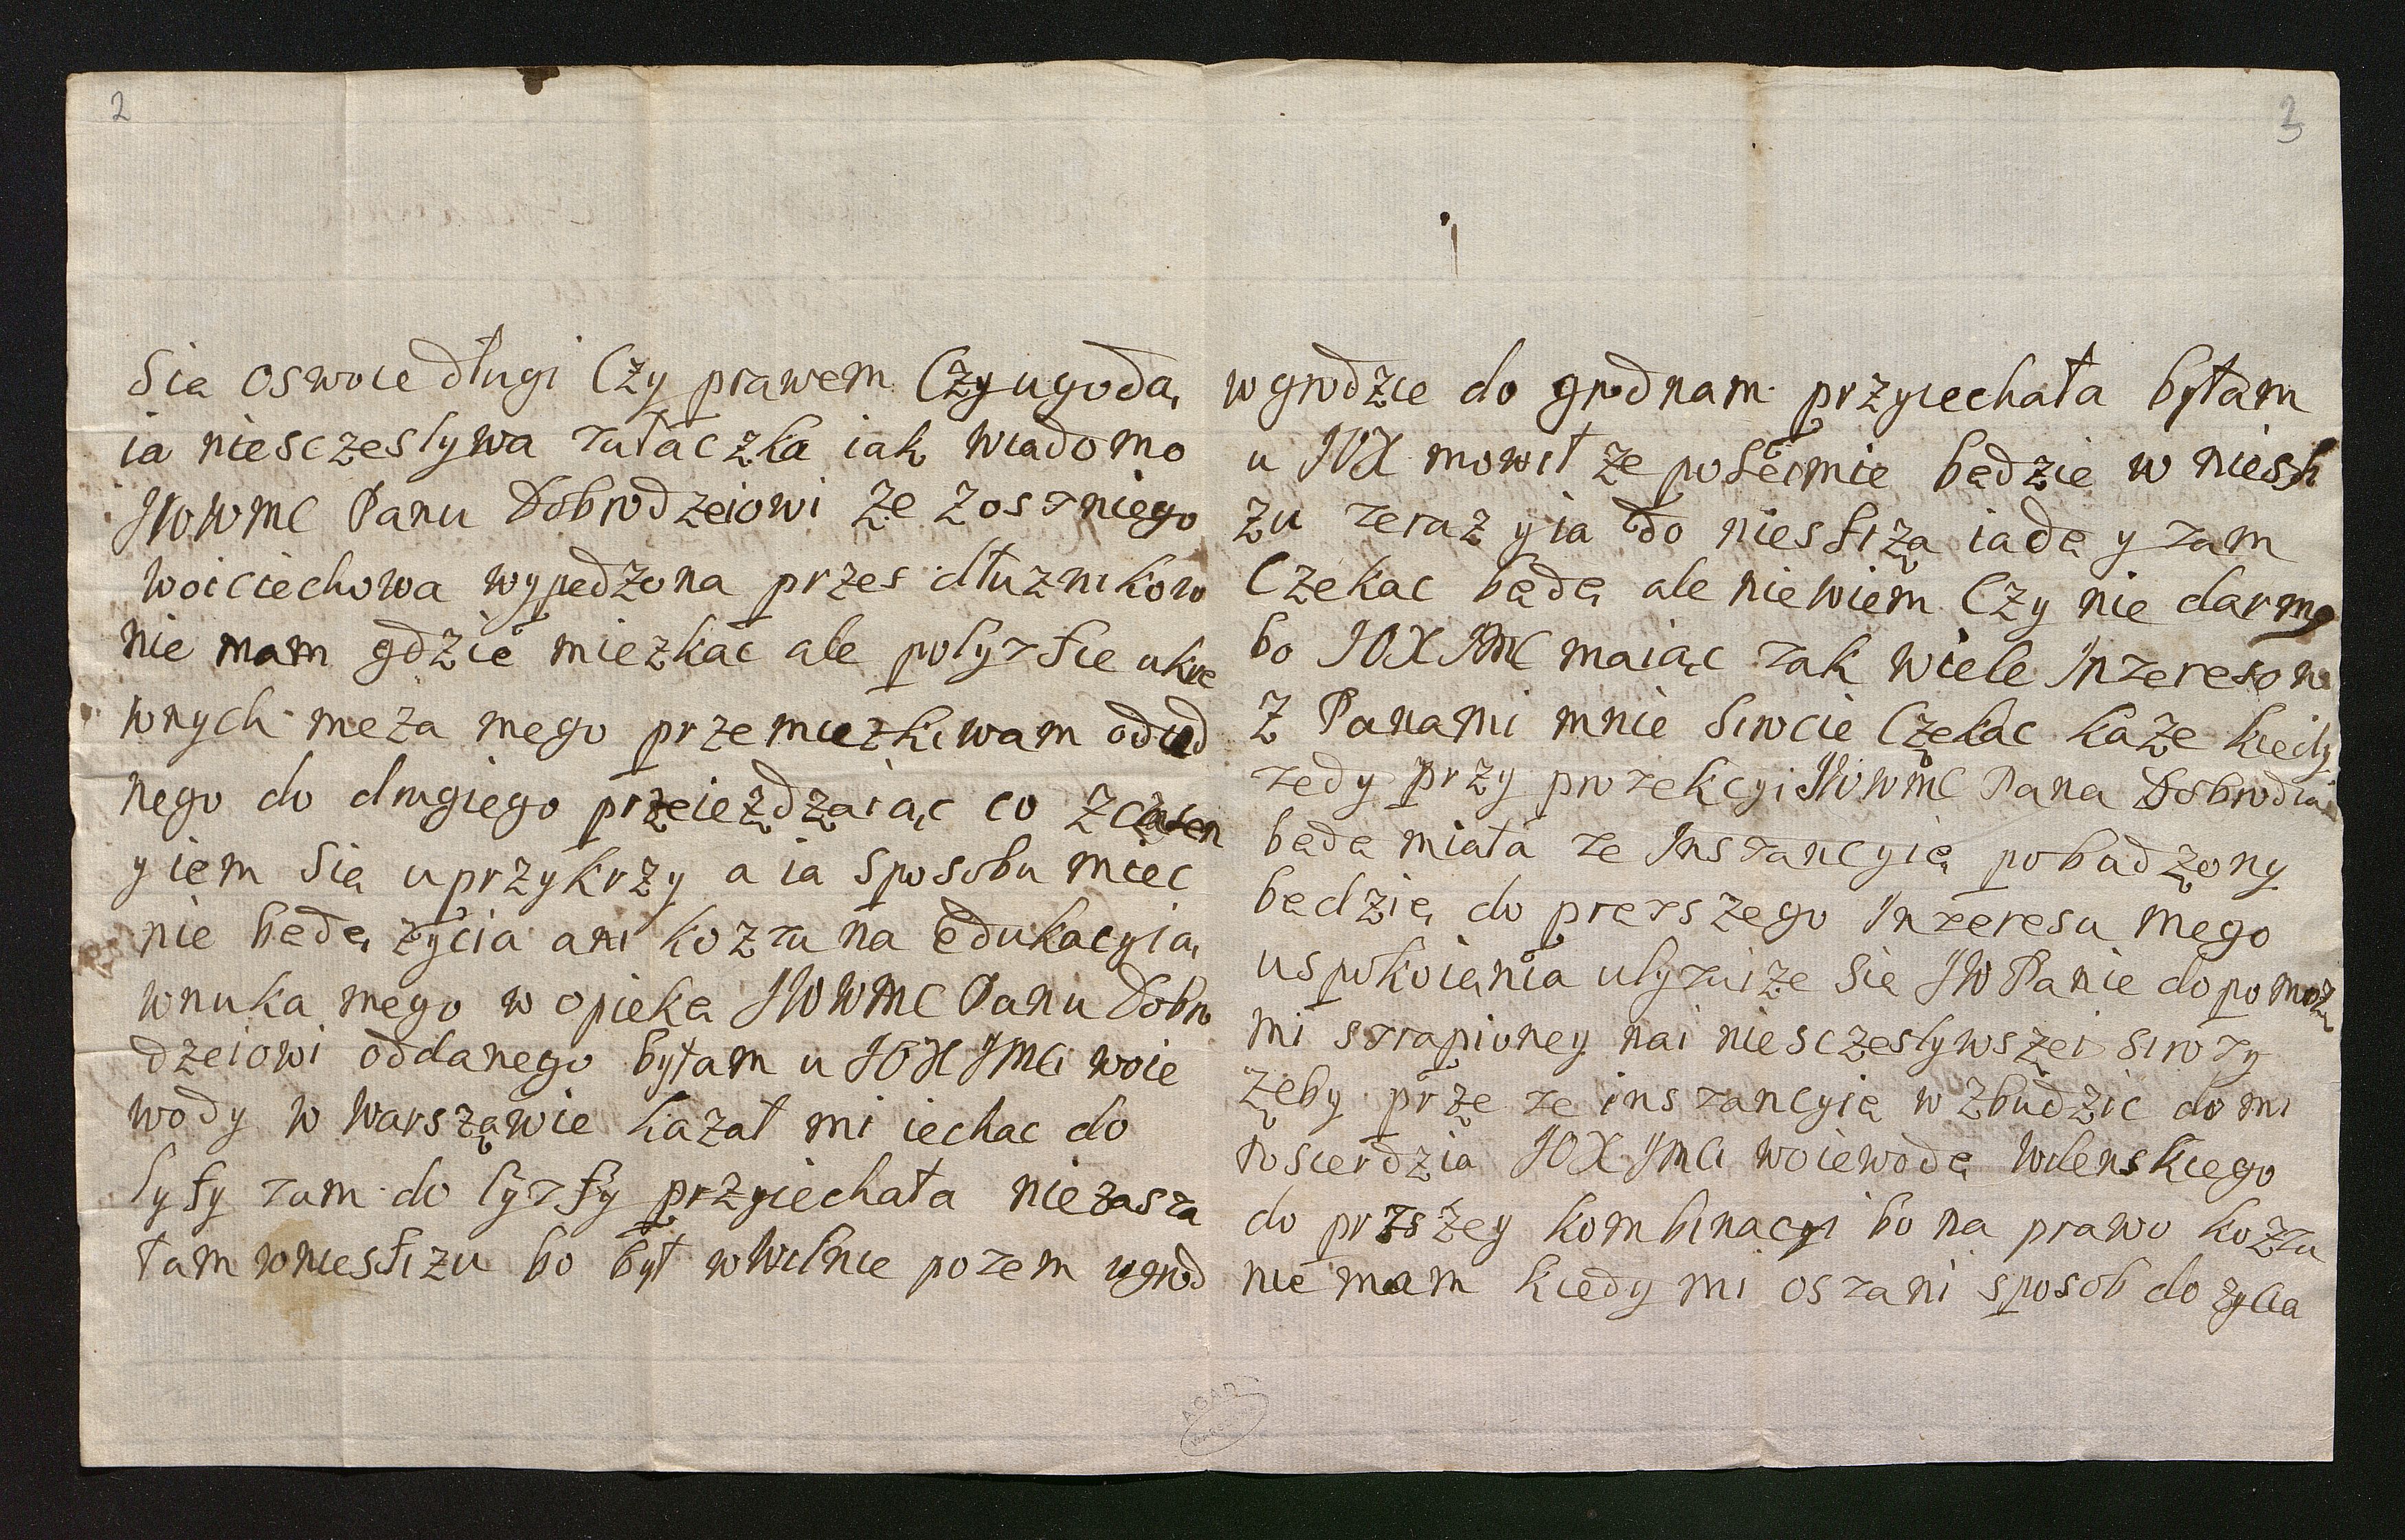 2
Sia oswoie długi Czy prawem Czy ugodą
ia niesczeslywa tułaczka iak wiadomo
JWWMC Panu Dobrodzeiowi że zostniego
woiciechowa wypedzona przes dłuznikow
nie mam gdzie miezkac ale polytfie ukre
wnych meża mego przemiezkiwam od ied
nego do drugiego przeieżdzaiąc co z czasen
yiem Sia uprzykrzy a ia sposobu miec
nie będę życia ani koztu na edukacyią
wnuka mego w opieke JWWMC Panu Dobro
dzeiowi oddanego byłam u JOX JMCi woie
wody w Warszawie kazał mi iechac do
lyfy tam do lytfy przyiechała niezasta
łam wniesfizu bo był w Wilnie potem wgrod

3
w grodzie do grodnam przyiechała byłam
u JOX mowił ze poSeimie będzie w niesfi
zu teraz y ia do niesfiża iade y tam
Czekac będę ale niewiem Czy nie darmo
bo JOX JMC maiąc tak wiele Interesow
z Panami mnie Sirocie Czekac każe kiedy
tedy przy protekcyi JWWMC Pana Dobrodzia
będe miała te Instancyię pobudzony
będzię do prętszego Interesu mego
uspokoienia ulytuize Sie JW Panie dopomoz
mi strapioney nai niesczeslywszei Siroty
żęby przę te instancyię wzbudzic do mi
łosierdzia JOX JMCi woiewodę wilenskiego
do prztszey kombinacyi bo na prawo koztu
nie mam kiedy mi ostani sposob do zycia
AGAD